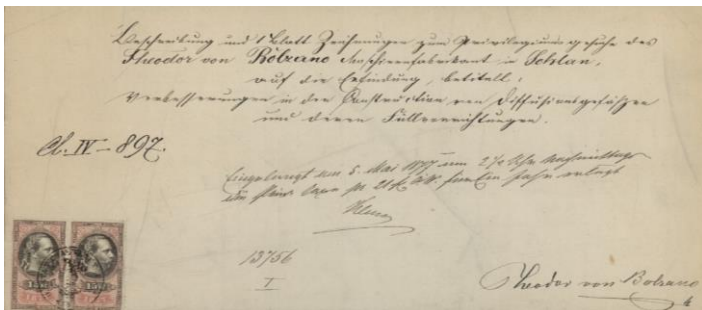 Beschreibung und 1 Blatt Zeichnungen zum Privilegiumsgesuche des
Theodor von Bolzano Maschinenfabrikant in Schlan,
auf die Erfindung, betitelt:
Verbesserungen in der Construction von Diffusionsgefässen
und deren Füllvorrichtungen.
Cl. IV - 897.
Eingelangt am 5. Mai 1877 um 2 ½ Uhr Nachmittags
Taxe pr 21 f. Jahr erlegt
13756
I
15 Kr 15 Kr
Theodor von Bolzano